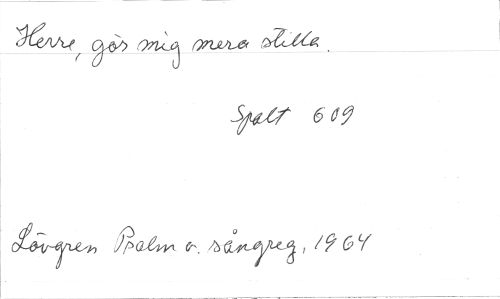 Herre, gör mig mera stilla.
Spalt 609
Lövgren Psalm o. sångreg, 1964